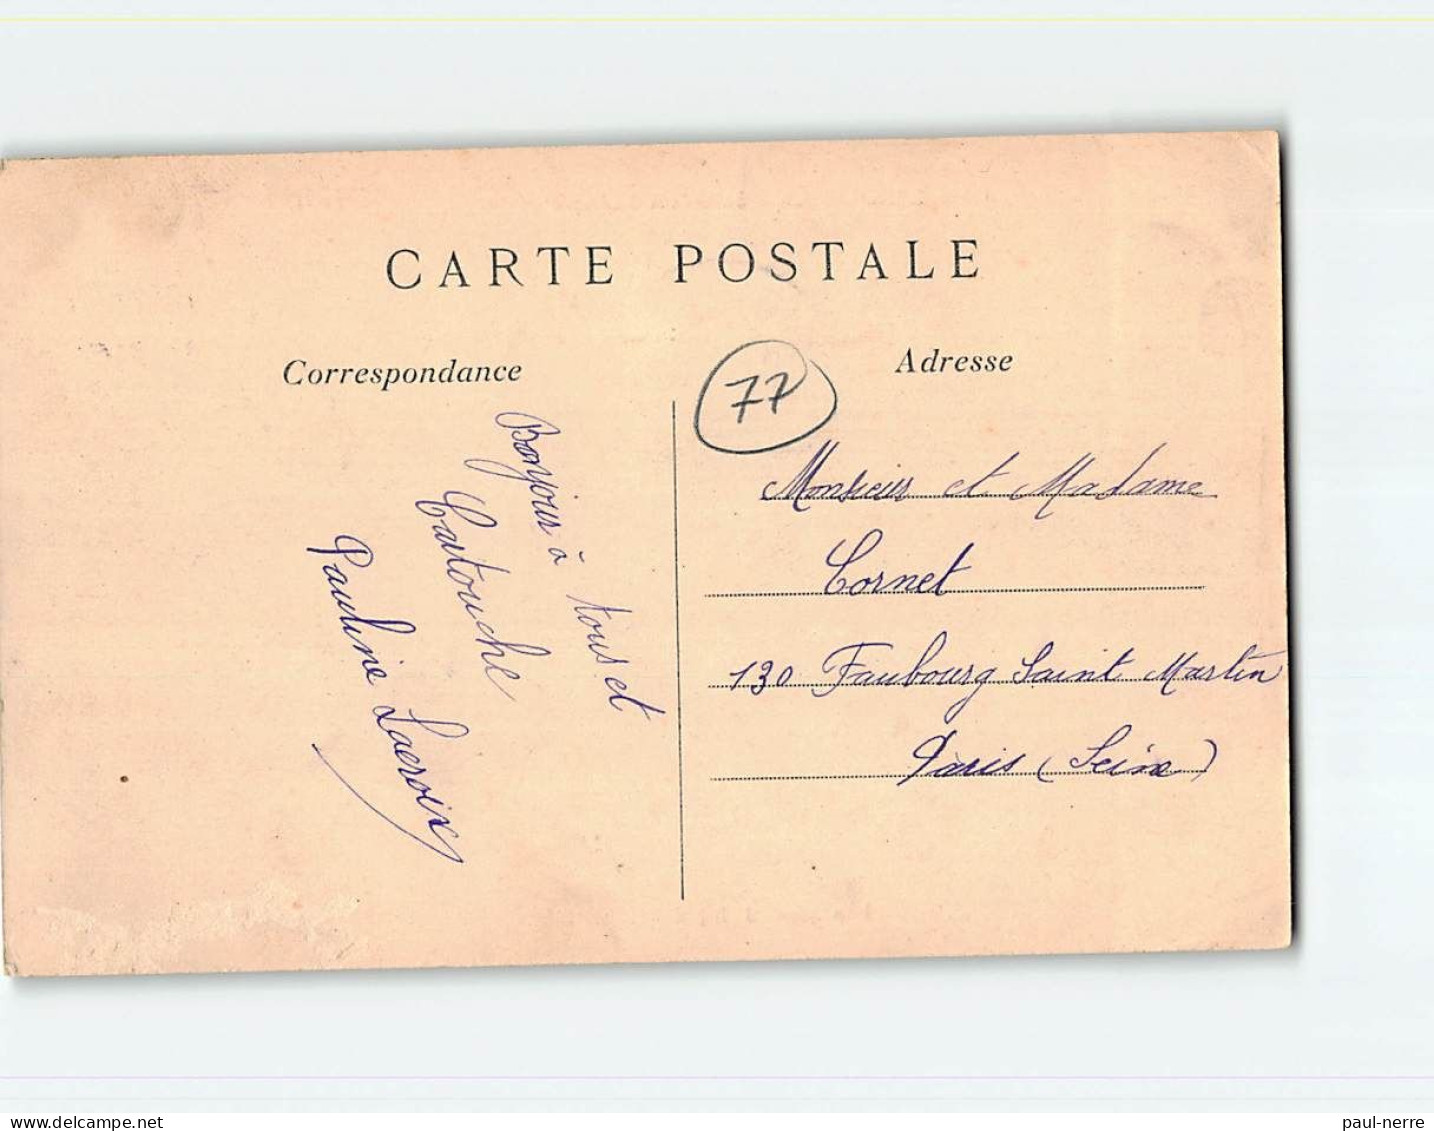 CARTE POSTALE
Correspondance
Adresse
77
Bonjour à tous et
Cartouche
Pauline Lacroix
Monsieur et Madame
Cornet
130 Faubourg Saint Martin
Paris (Seine)
delcampe.net
paul-nerre